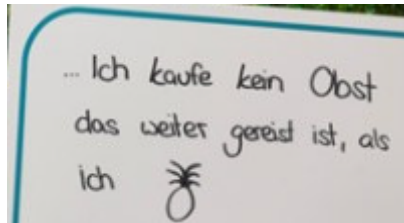 ... Ich kaufe kein Obst
das weiter gereist ist, als
ich